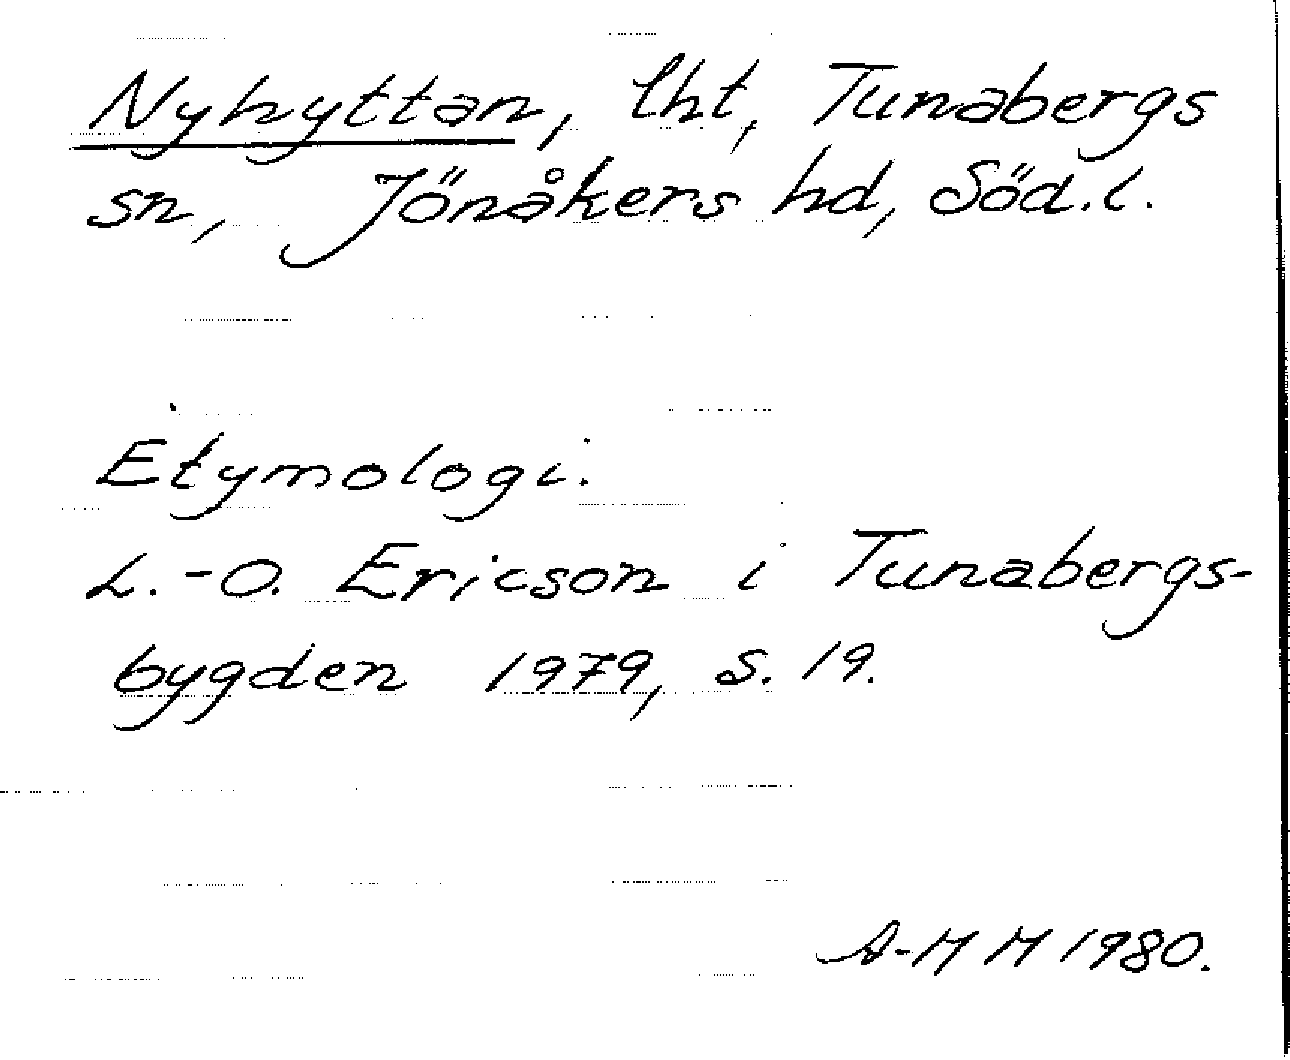 Nyhyttan, lht, Tunabergs
sn, Jönåkers hd, Söd.l.
Etymologi.
L.-O. Ericson i Tunabergs-
bygden 1979, s. 19.
A-M M 1980.